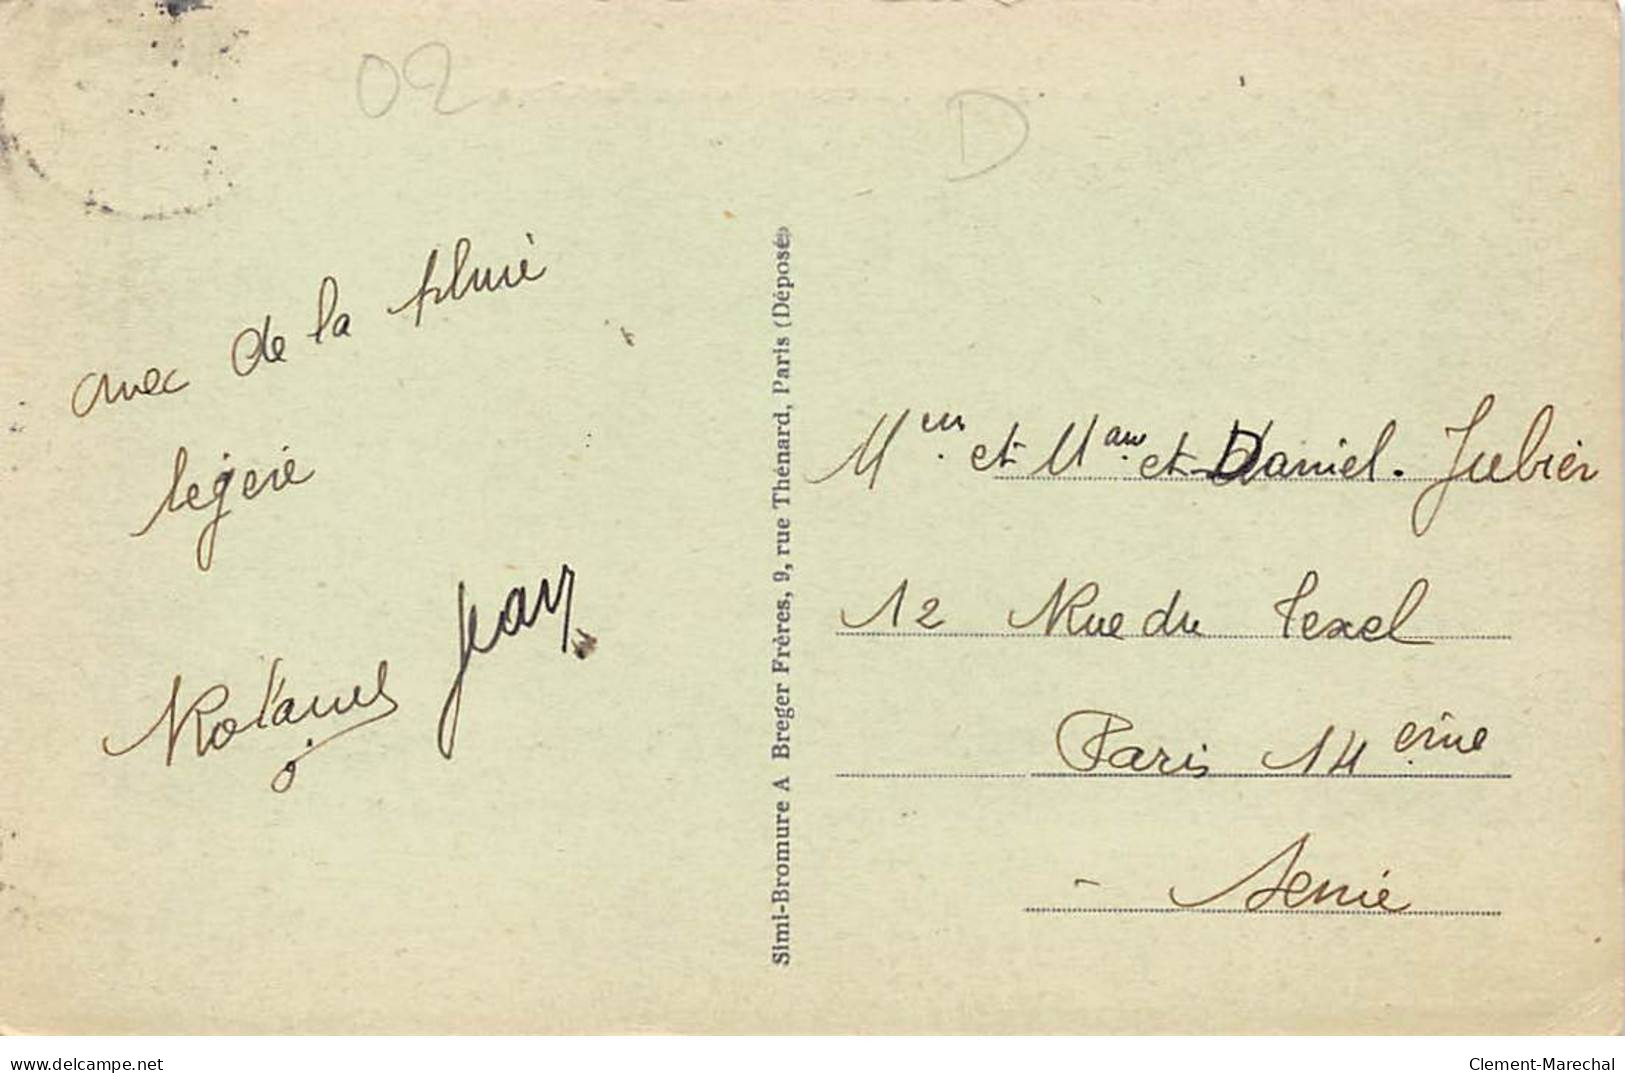 02
D
avec de la pluie
légère
Jean
Simi-Bromure A Breger Frères, 9, rue Thénard, Paris (Déposé)
Mer et Mam et Daniel. Jubier
12 Rue du Texel
Paris 14 eme
- Seine
delcampe.net
Clement-Marechal